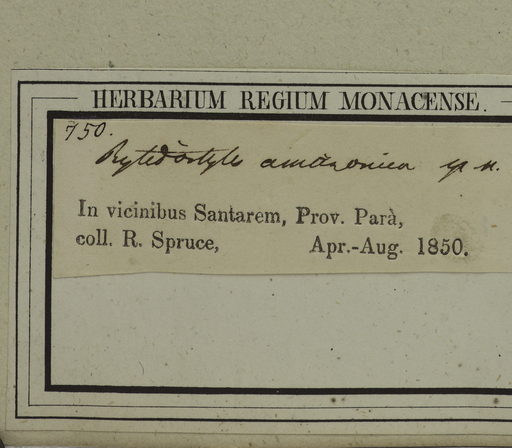 HERBARIUM REGIUM MONACENSE.
750.
Rytidostylis amazonica sp. n.
In vicinibus Santarem, Prov. Parà,
coll. R. Spruce, Apr.-Aug. 1850.